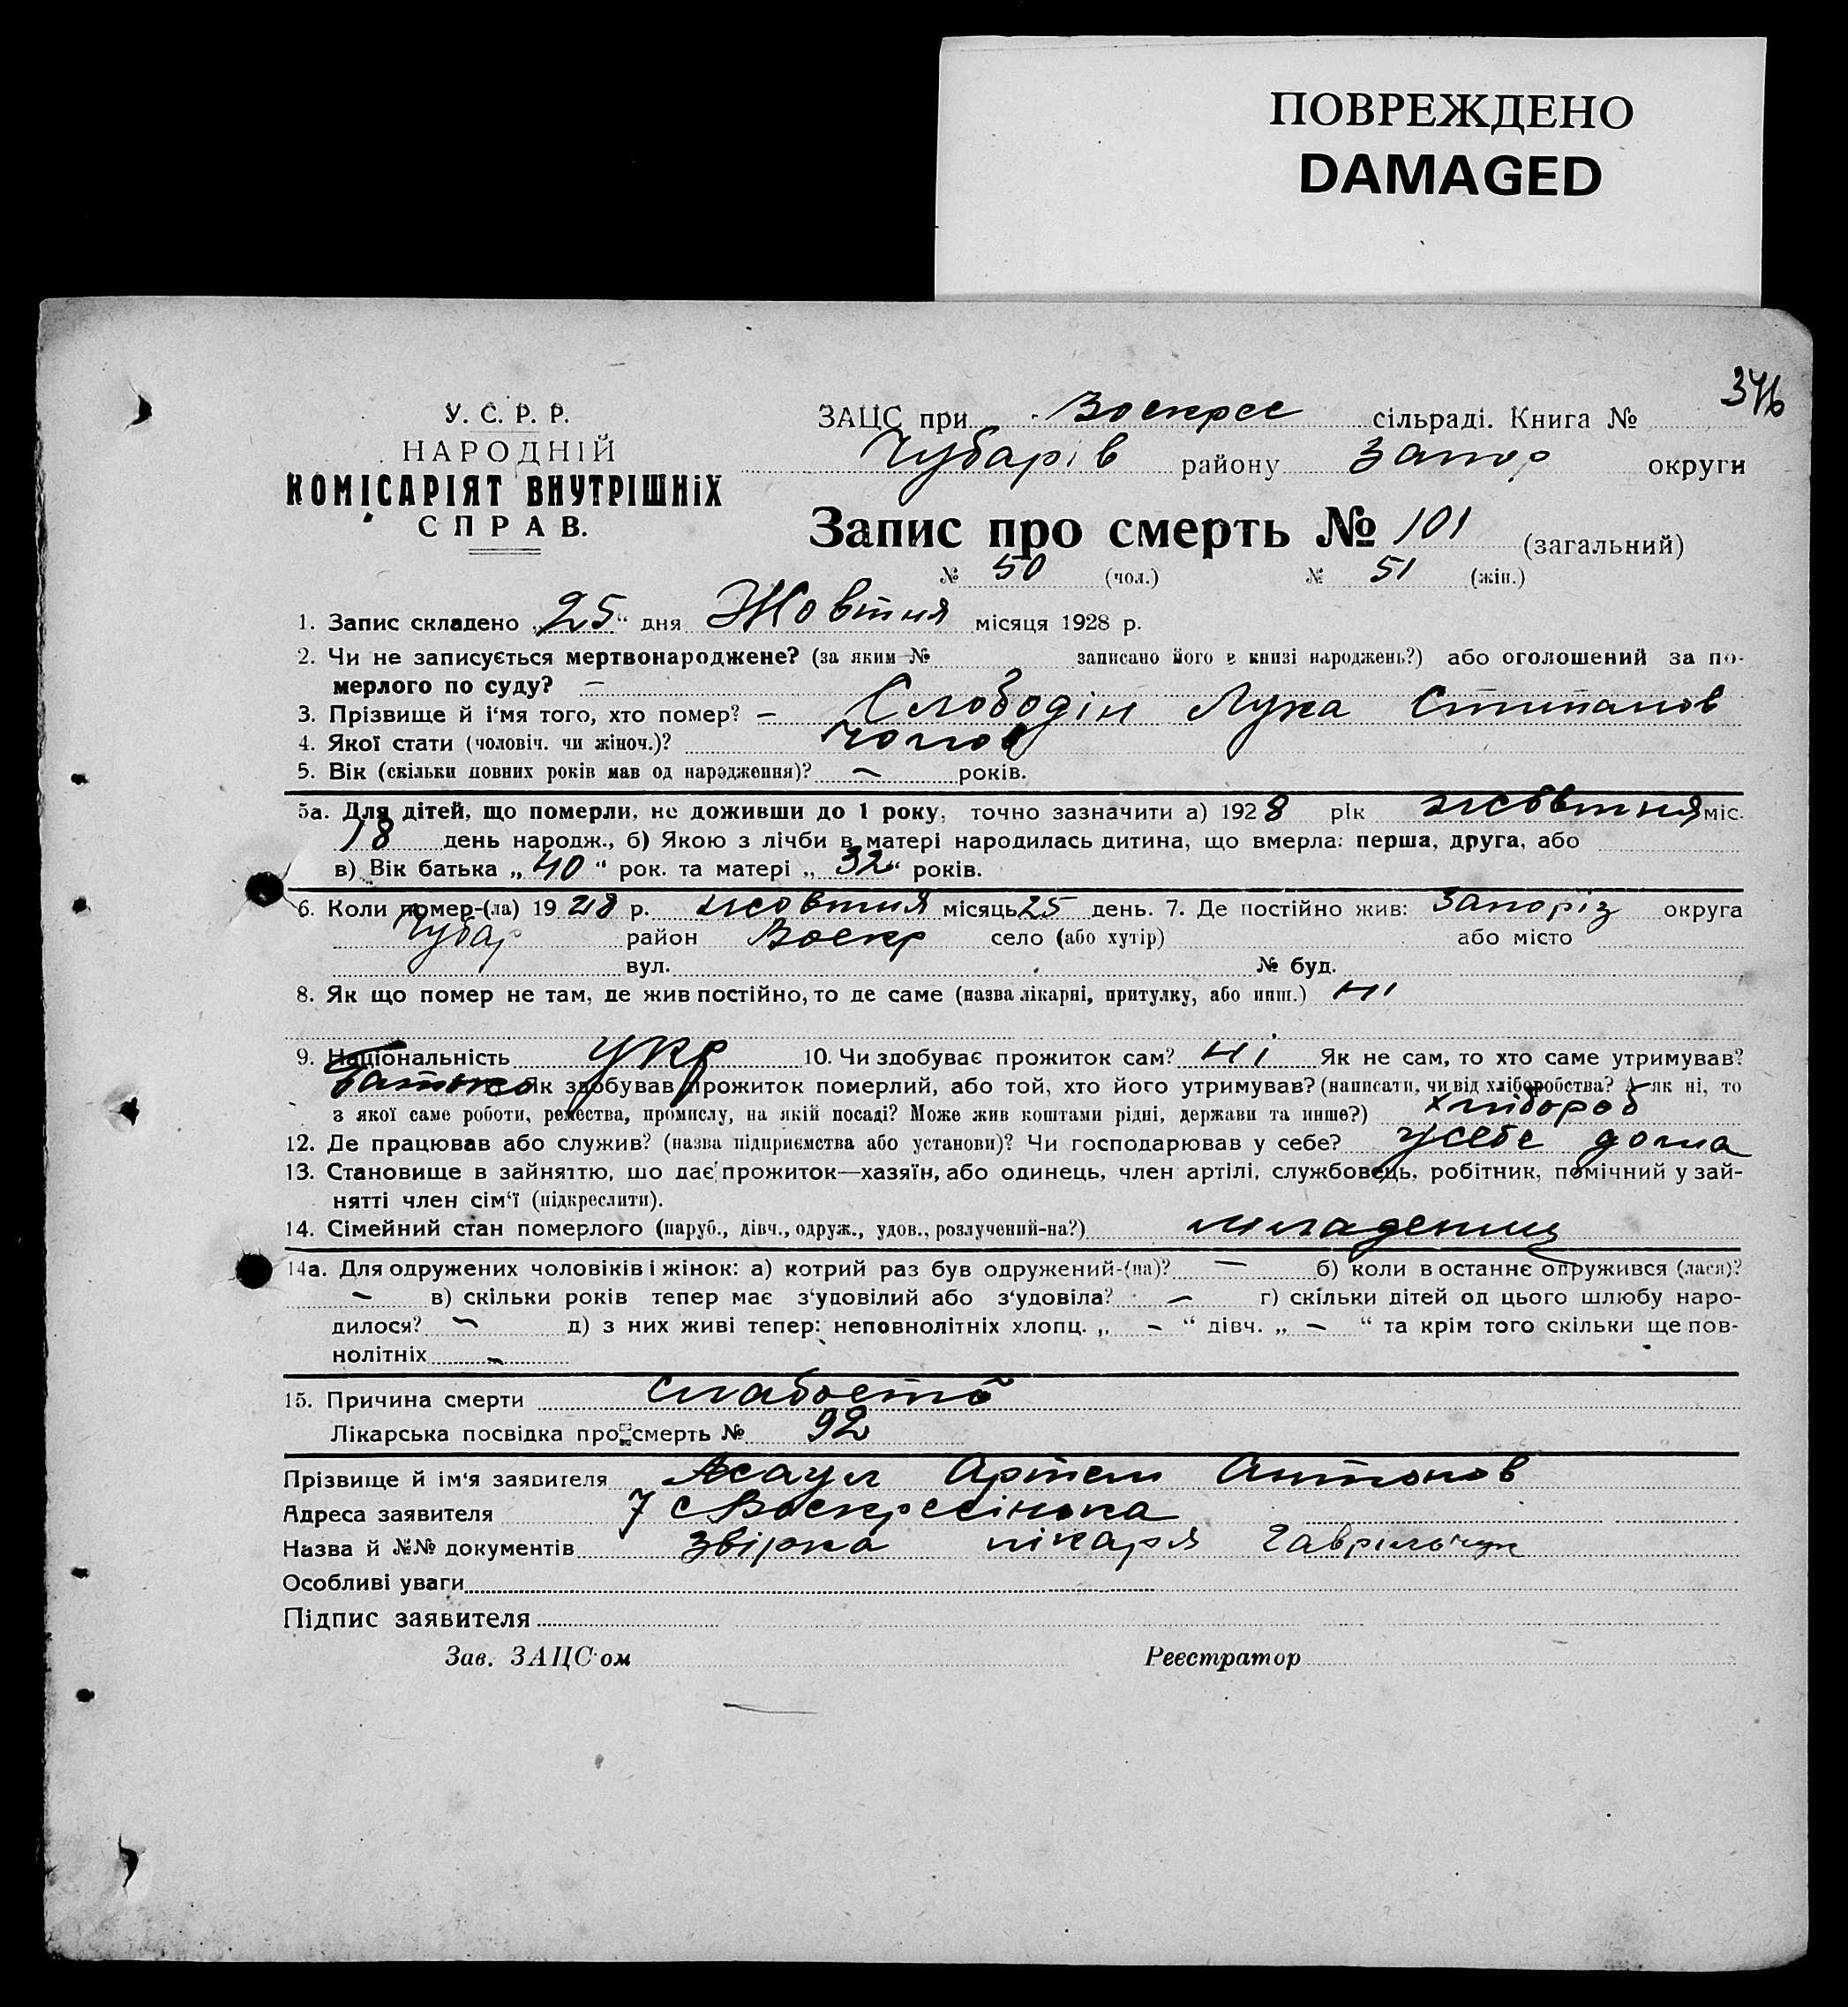 ПОВРЕЖДЕНО
DAMAGED
346
У. С. Р. Р.
НАРОДНІЙ
КОМІСАРІЯТ ВНУТРІШНІХ
СПРАВ.
ЗАЦС при Воскрес сільраді. Книга №
Чубарів району Запор округи
Запис про смерть № 101 (загальний)
№ 50 (чол.) № 51 (жін.)
1. Запис складено „25“ дня Жовтня місяця 1928 р.
2. Чи не записується мертвонароджене? (за яким № записано його в книзі народжень?) або оголошений за по-
мерлого по суду? —
3. Прізвище й і'мя того, хто помер? — Слободін Лука Стипанов
4. Якої стати (чоловіч. чи жіноч.)? чолов
5. Вік (скільки повних років мав од народження)? — років.
5а. Для дітей, що померли, не доживши до 1 року, точно зазначити а) 1928 рік жовтня міс.
18 день народж., б) Якою з лічби в матері народилась дитина, що вмерла: перша, друга, або
в) Вік батька „40“ рок. та матері „32“ років.
6. Коли помер-(ла) 1928 р. жовтня місяць 25 день. 7. Де постійно жив: Запоріз округа
Чубар район Воскр село (або хутір) або місто
вул. № буд.
8. Як що помер не там, де жив постійно, то де саме (назва лікарні, притулку, або инш.) ні
9. Національність укр 10. Чи здобуває прожиток сам? ні Як не сам, то хто саме утримував?
батько Як здобував прожиток померлий, або той, хто його утримував? (написати, чи від хліборобства? А як ні, то
з якої саме роботи, ремества, промислу, на якій посаді? Може жив коштами рідні, держави та инше?) хлібороб
12. Де працював або служив? (назва підприємства або установи)? Чи господарював у себе? усебе дома
13. Становище в зайняттю, що дає прожиток—хазяїн, або одинець, член артілі, службовець, робітник, помічний у зай-
нятті член сім'ї (підкреслити).
14. Сімейний стан померлого (паруб., дівч., одруж., удов., розлучений-на?) младениц
14а. Для одружених чоловіків і жінок: а) котрий раз був одружений-(на)? — б) коли востаннє одружився (лася)?
— в) скільки років тепер має з'удовілий або з'удовіла? — г) скільки дітей од цього шлюбу наро-
дилося? — д) з них живі тепер: неповнолітніх хлопц. „ — “ дівч. „ — “ та крім того скільки ще пов-
нолітніх —
15. Причина смерти слабость
Лікарська посвідка про смерть № 92
Прізвище й ім'я заявителя Асаул Артем Антонов
Адреса заявителя с Воскресінька
Назва й №№ документів звірка лікаря Гаврільчук
Особливі уваги
Підпис заявителя
Зав. ЗАЦС'ом Реєстратор